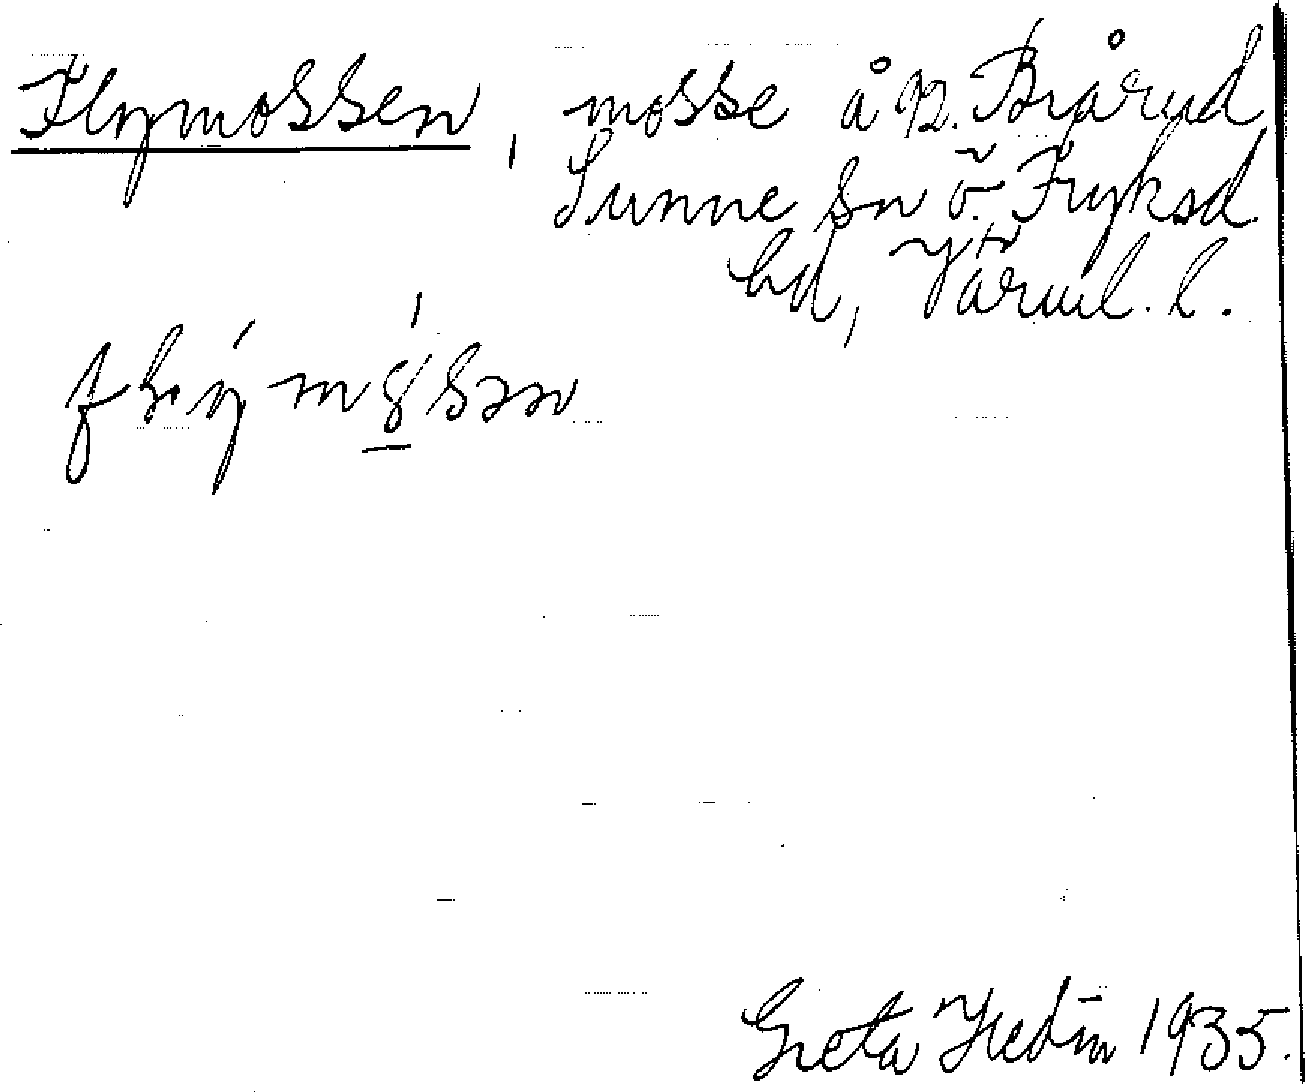 Flymossen, mosse å äg. Bjårud
Sunne sn Ö. Fryksd
hd, Värml. l.
Greta Hedin 1935.